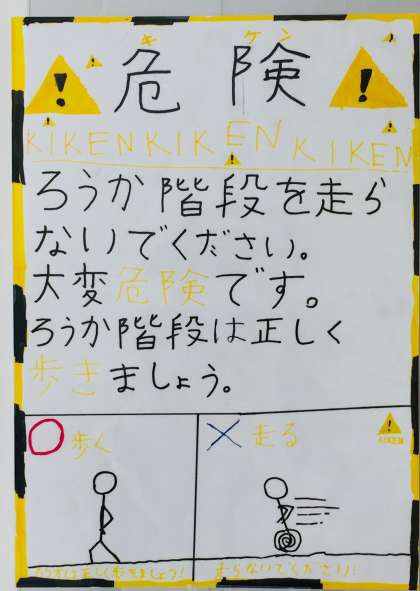 キケン
危険
KIKEN KIKEN KIKEN
ろうか階段を走ら
ないでください。
大変危険です。
ろうか階段は正しく
歩きましょう。
○歩く
×走る
KIKEN
ろうかは正しく歩きましょう!
走らないでください!